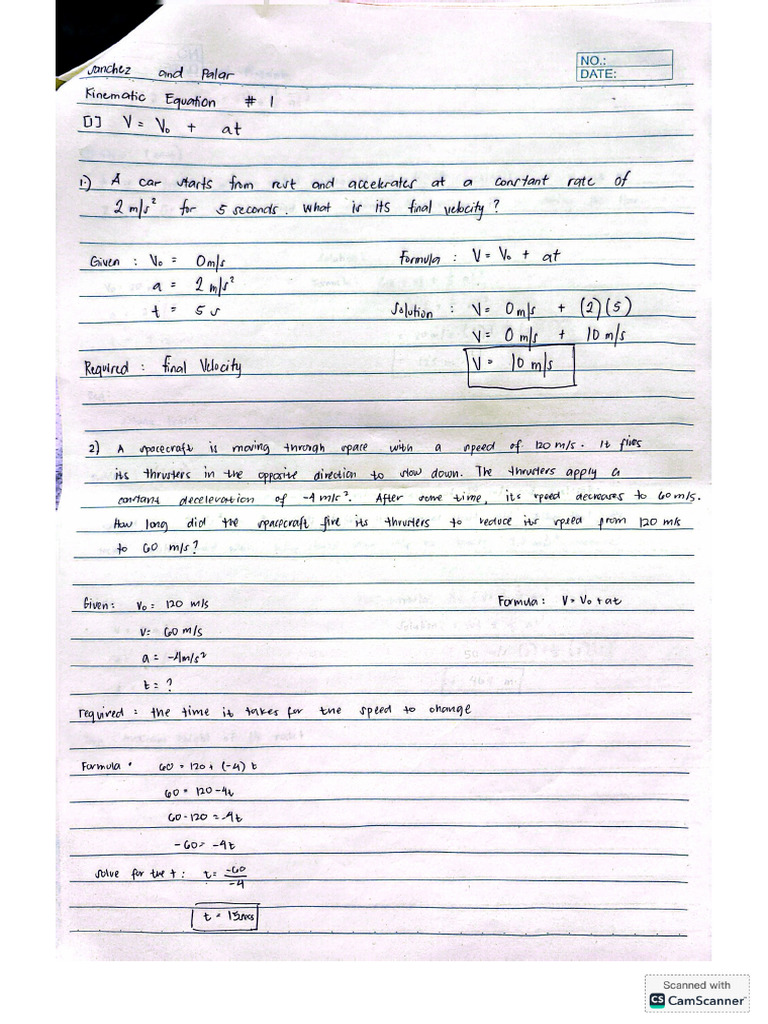 NO.:
DATE:
Sanchez and Palar
Kinematic Equation # 1
[1] V = V₀ + at
1.) A car starts from rest and accelerates at a constant rate of
2 m/s² for 5 seconds. What is its final velocity?
Given : V₀ = 0m/s
a = 2 m/s²
t = 5 s
Required : final Velocity
Formula : V = V₀ + at
Solution : V = 0 m/s + (2)(5)
V = 0 m/s + 10 m/s
V = 10 m/s
2) A spacecraft is moving through space with a speed of 120 m/s. It fires
its thrusters in the opposite direction to slow down. The thrusters apply a
constant deceleration of -4 m/s². After some time, its speed decreases to 60 m/s.
How long did the spacecraft fire its thrusters to reduce its speed from 120 m/s
to 60 m/s?
Given: V₀ = 120 m/s
V = 60 m/s
a = -4m/s²
t = ?
Formula: V = V₀ + at
required = the time it takes for the speed to change
Formula: 60 = 120 + (-4) t
60 = 120 - 4t
60 - 120 = -4t
-60 = -4t
solve for the t : t = -60/-4
t = 15
Scanned with
CS CamScanner